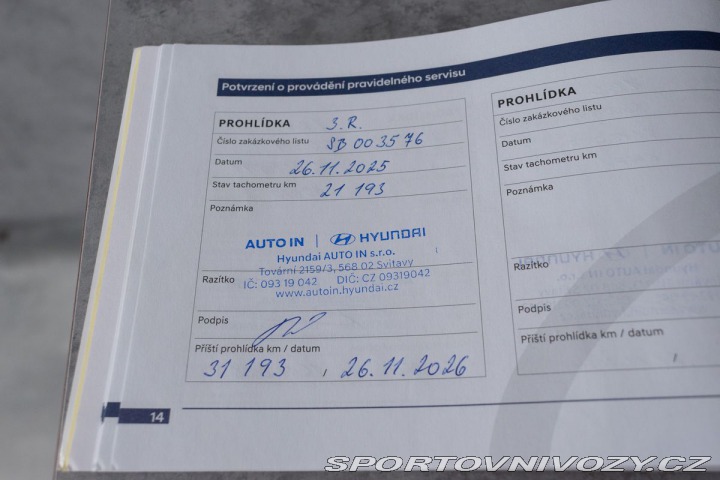 Potvrzení o provádění pravidelného servisu
PROHLÍDKA 3. R.
Číslo zakázkového listu SB 003576
Datum 26.11.2025
Stav tachometru km 21 193
Poznámka
AUTO IN | HYUNDAI
Hyundai AUTO IN s.r.o.
Tovární 2159/3, 568 02 Svitavy
Razítko IČ: 093 19 042 DIČ: CZ 09319042
www.autoin.hyundai.cz
Podpis
Příští prohlídka km / datum
31 193 , 26.11.2026
14
PROHLÍDKA
Číslo zakázkového listu
Datum
Stav tachometru km
Poznámka
Razítko
Podpis
Příští prohlídka km / datum
/
SPORTOVNIVOZY.CZ